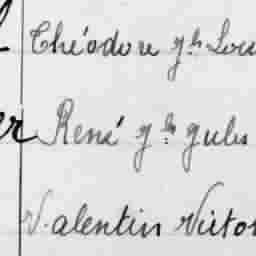 Théodore gh Lou
er René gh gules
Valentin Victor